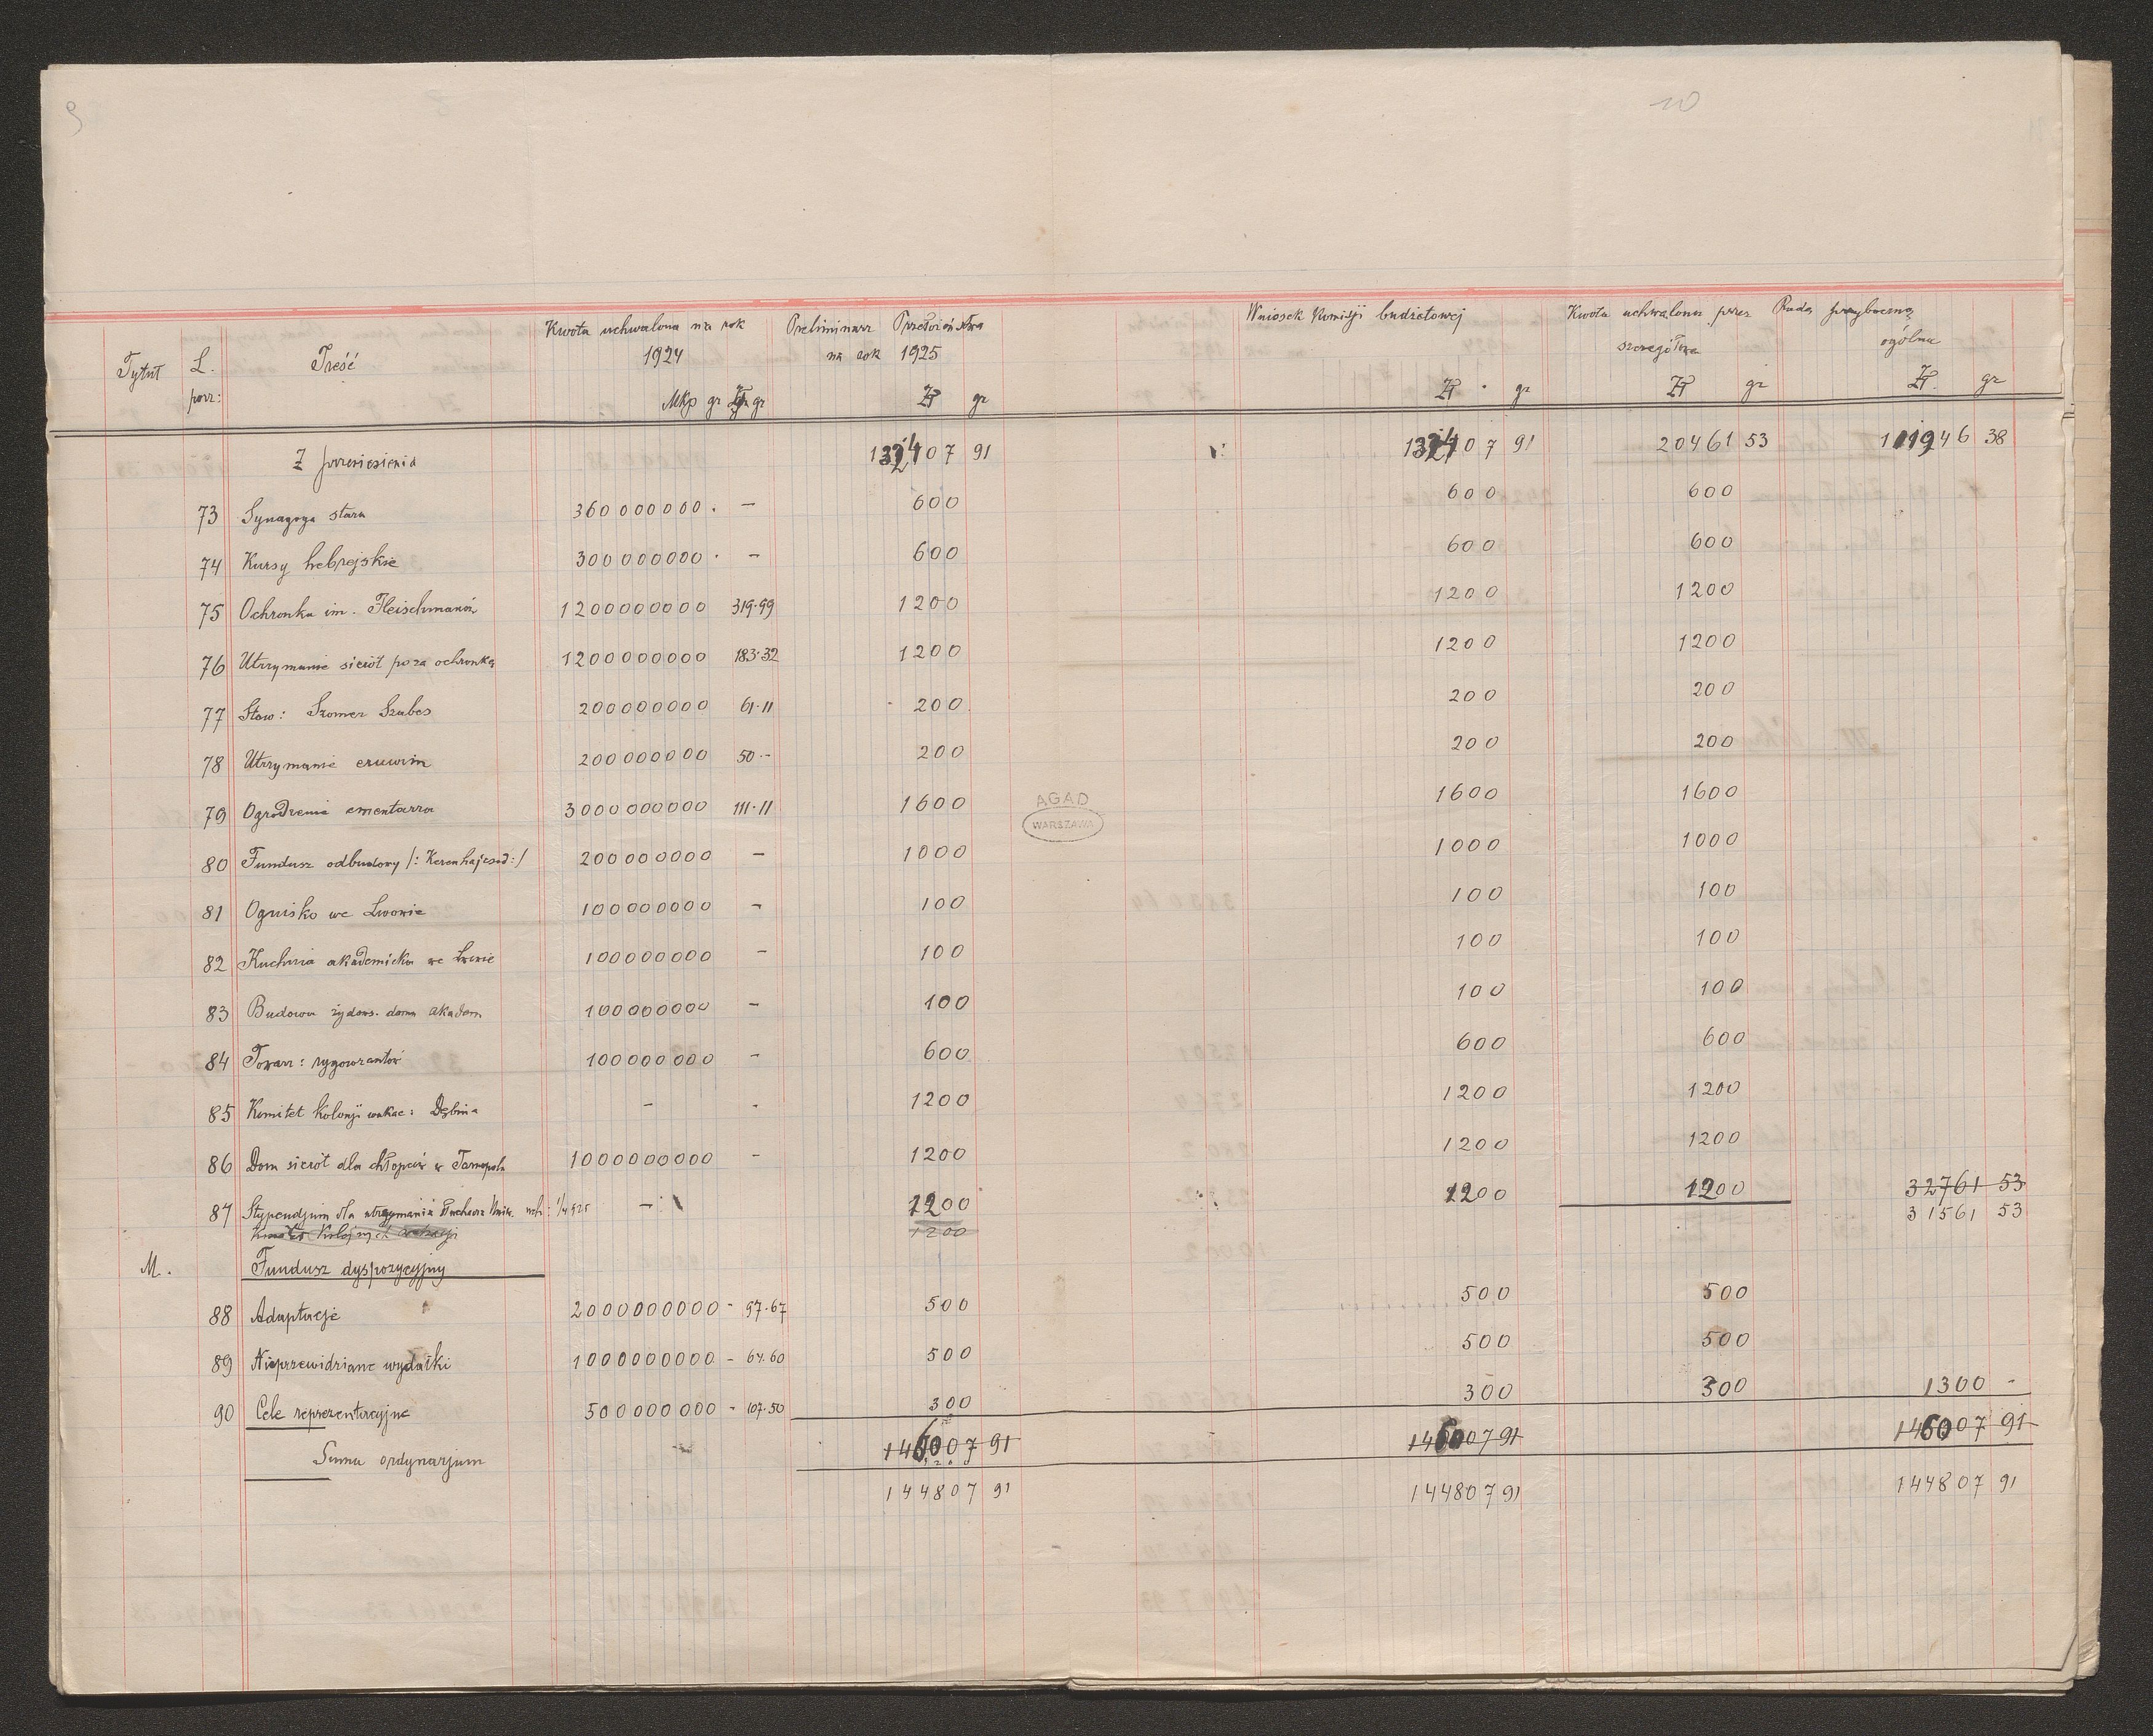 9
10
Tytuł L. porz: Treść Kwota uchwalona na rok 1924 Mkp gr Zł gr Preliminarz Przełożeństwa na rok 1925 Zł gr Wniosek Komisji budżetowej Zł gr Kwota uchwalona przez Radę przyboczną szczegółowa Zł gr ogólna Zł gr
Z przeniesienia 132407 91 132407 91 20461 53 111946 38
73 Synagoga stara 360000000 . — 600 600 600
74 Kursy hebrejskie 300000000 . — 600 600 600
75 Ochronka im. Fleischmanów 1200000000 319.99 1200 1200 1200
76 Utrzymanie sierót poza ochronką 1200000000 183.32 1200 1200 1200
77 Stow: Szomer Szabes 200000000 61.11 200 200 200
78 Utrzymanie eruwim 200000000 50.- 200 200 200
79 Ogrodzenie cmentarza 3000000000 111.11 1600 1600 1600
AGAD
WARSZAWA
80 Fundusz odbudowy /: Keren hajesod :/ 200000000 — 1000 1000 1000
81 Ognisko we Lwowie 100000000 — 100 100 100
82 Kuchnia akademicka we Lwowie 100000000 — 100 100 100
83 Budowa żydows. domu akadem 100000000 — 100 100 100
84 Towarz: rygorozantów 100000000 — 600 600 600
85 Komitet kolonji wakac: Dębina — - 1200 1200 1200
86 Dom sierót dla chłopców w Tarnopolu 1000000000 — 1200 1200 1200
87 Stypendjum dla utrzymania Uniw. uch: — 1200 1200 1200 32761 53
1200 31561 53
M. Fundusz dyspozycyjny
88 Adaptacje 2000000000 - 97.67 500 500 500
89 Nieprzewidziane wydatki 1000000000 - 67.60 500 500 500
90 Cele reprezentacyjne 500000000 - 107.50 300 300 300 1300 -
Suma ordynarjum 146007 91 146007 91 146007 91
144807 91 144807 91 144807 91